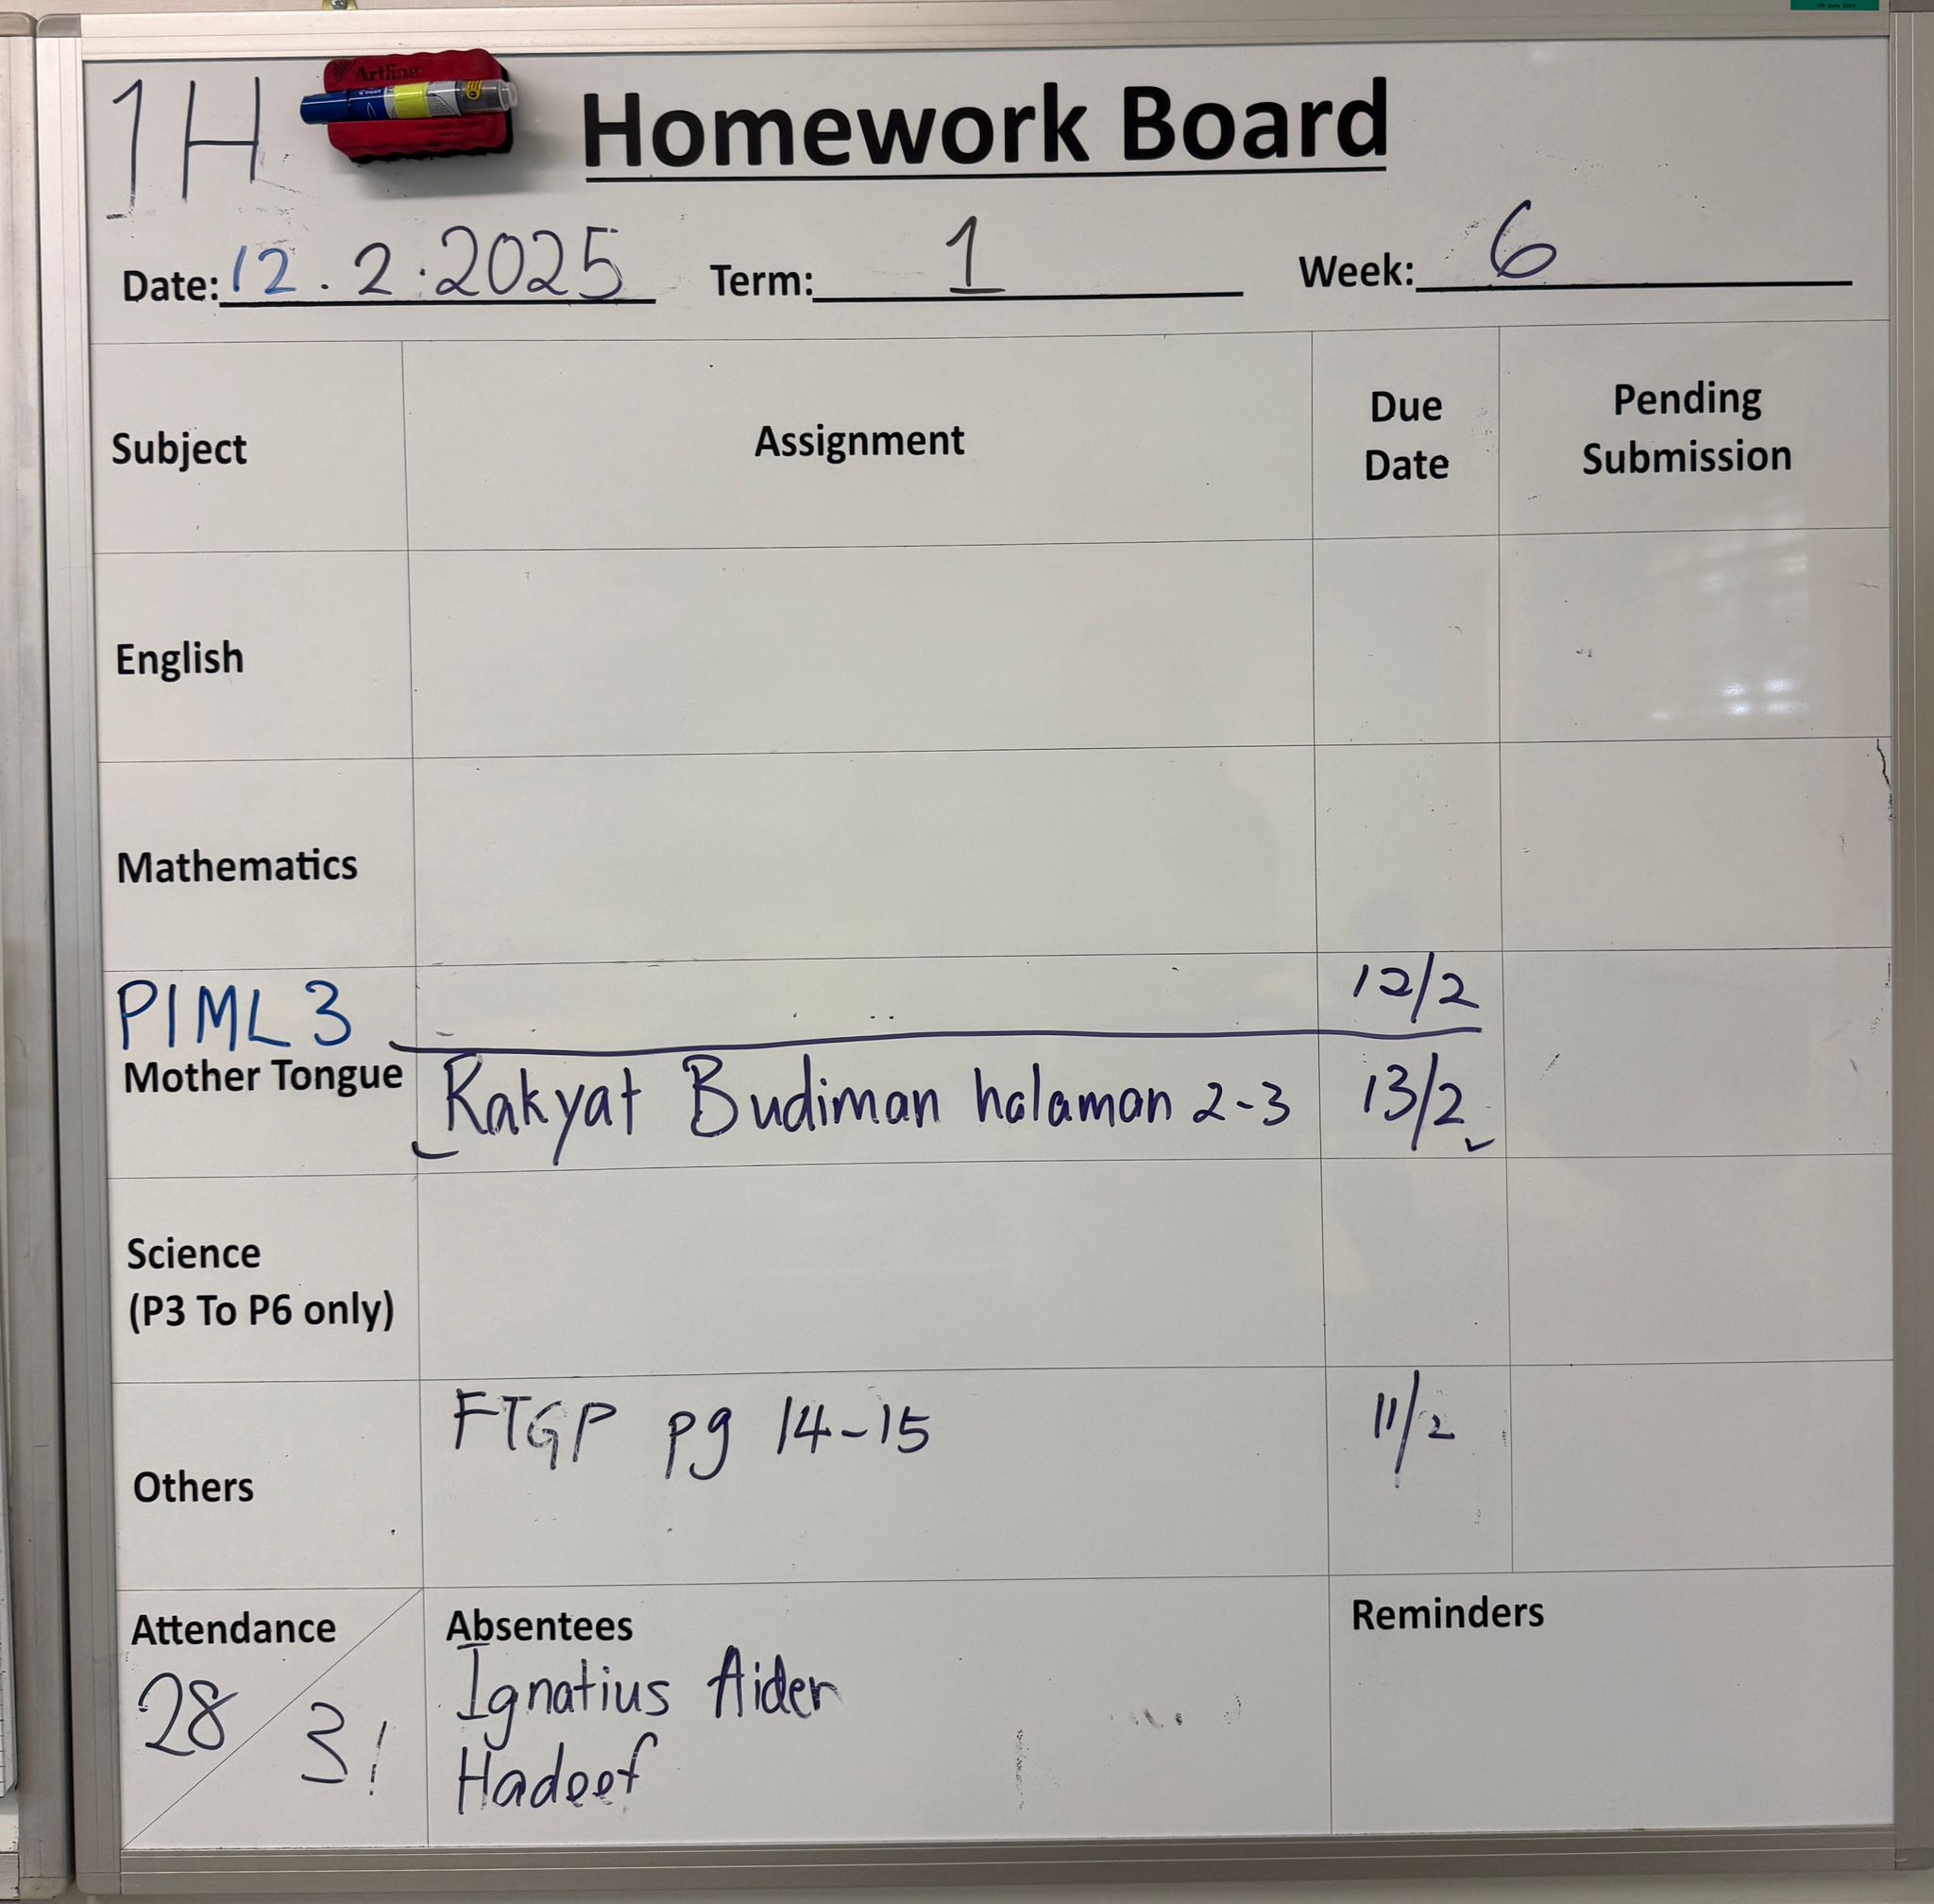 Artline
1H
Homework Board
Date: 12.2.2025 Term: 1 Week: 6
Subject Assignment Due Date Pending Submission
English
Mathematics
P1ML3 12/2
Mother Tongue Rakyat Budiman halaman 2-3 13/2
Science
(P3 To P6 only)
Others FTGP pg 14-15 11/2
Attendance Absentees Reminders
28 / 31 Ignatius Aider
Hadeef